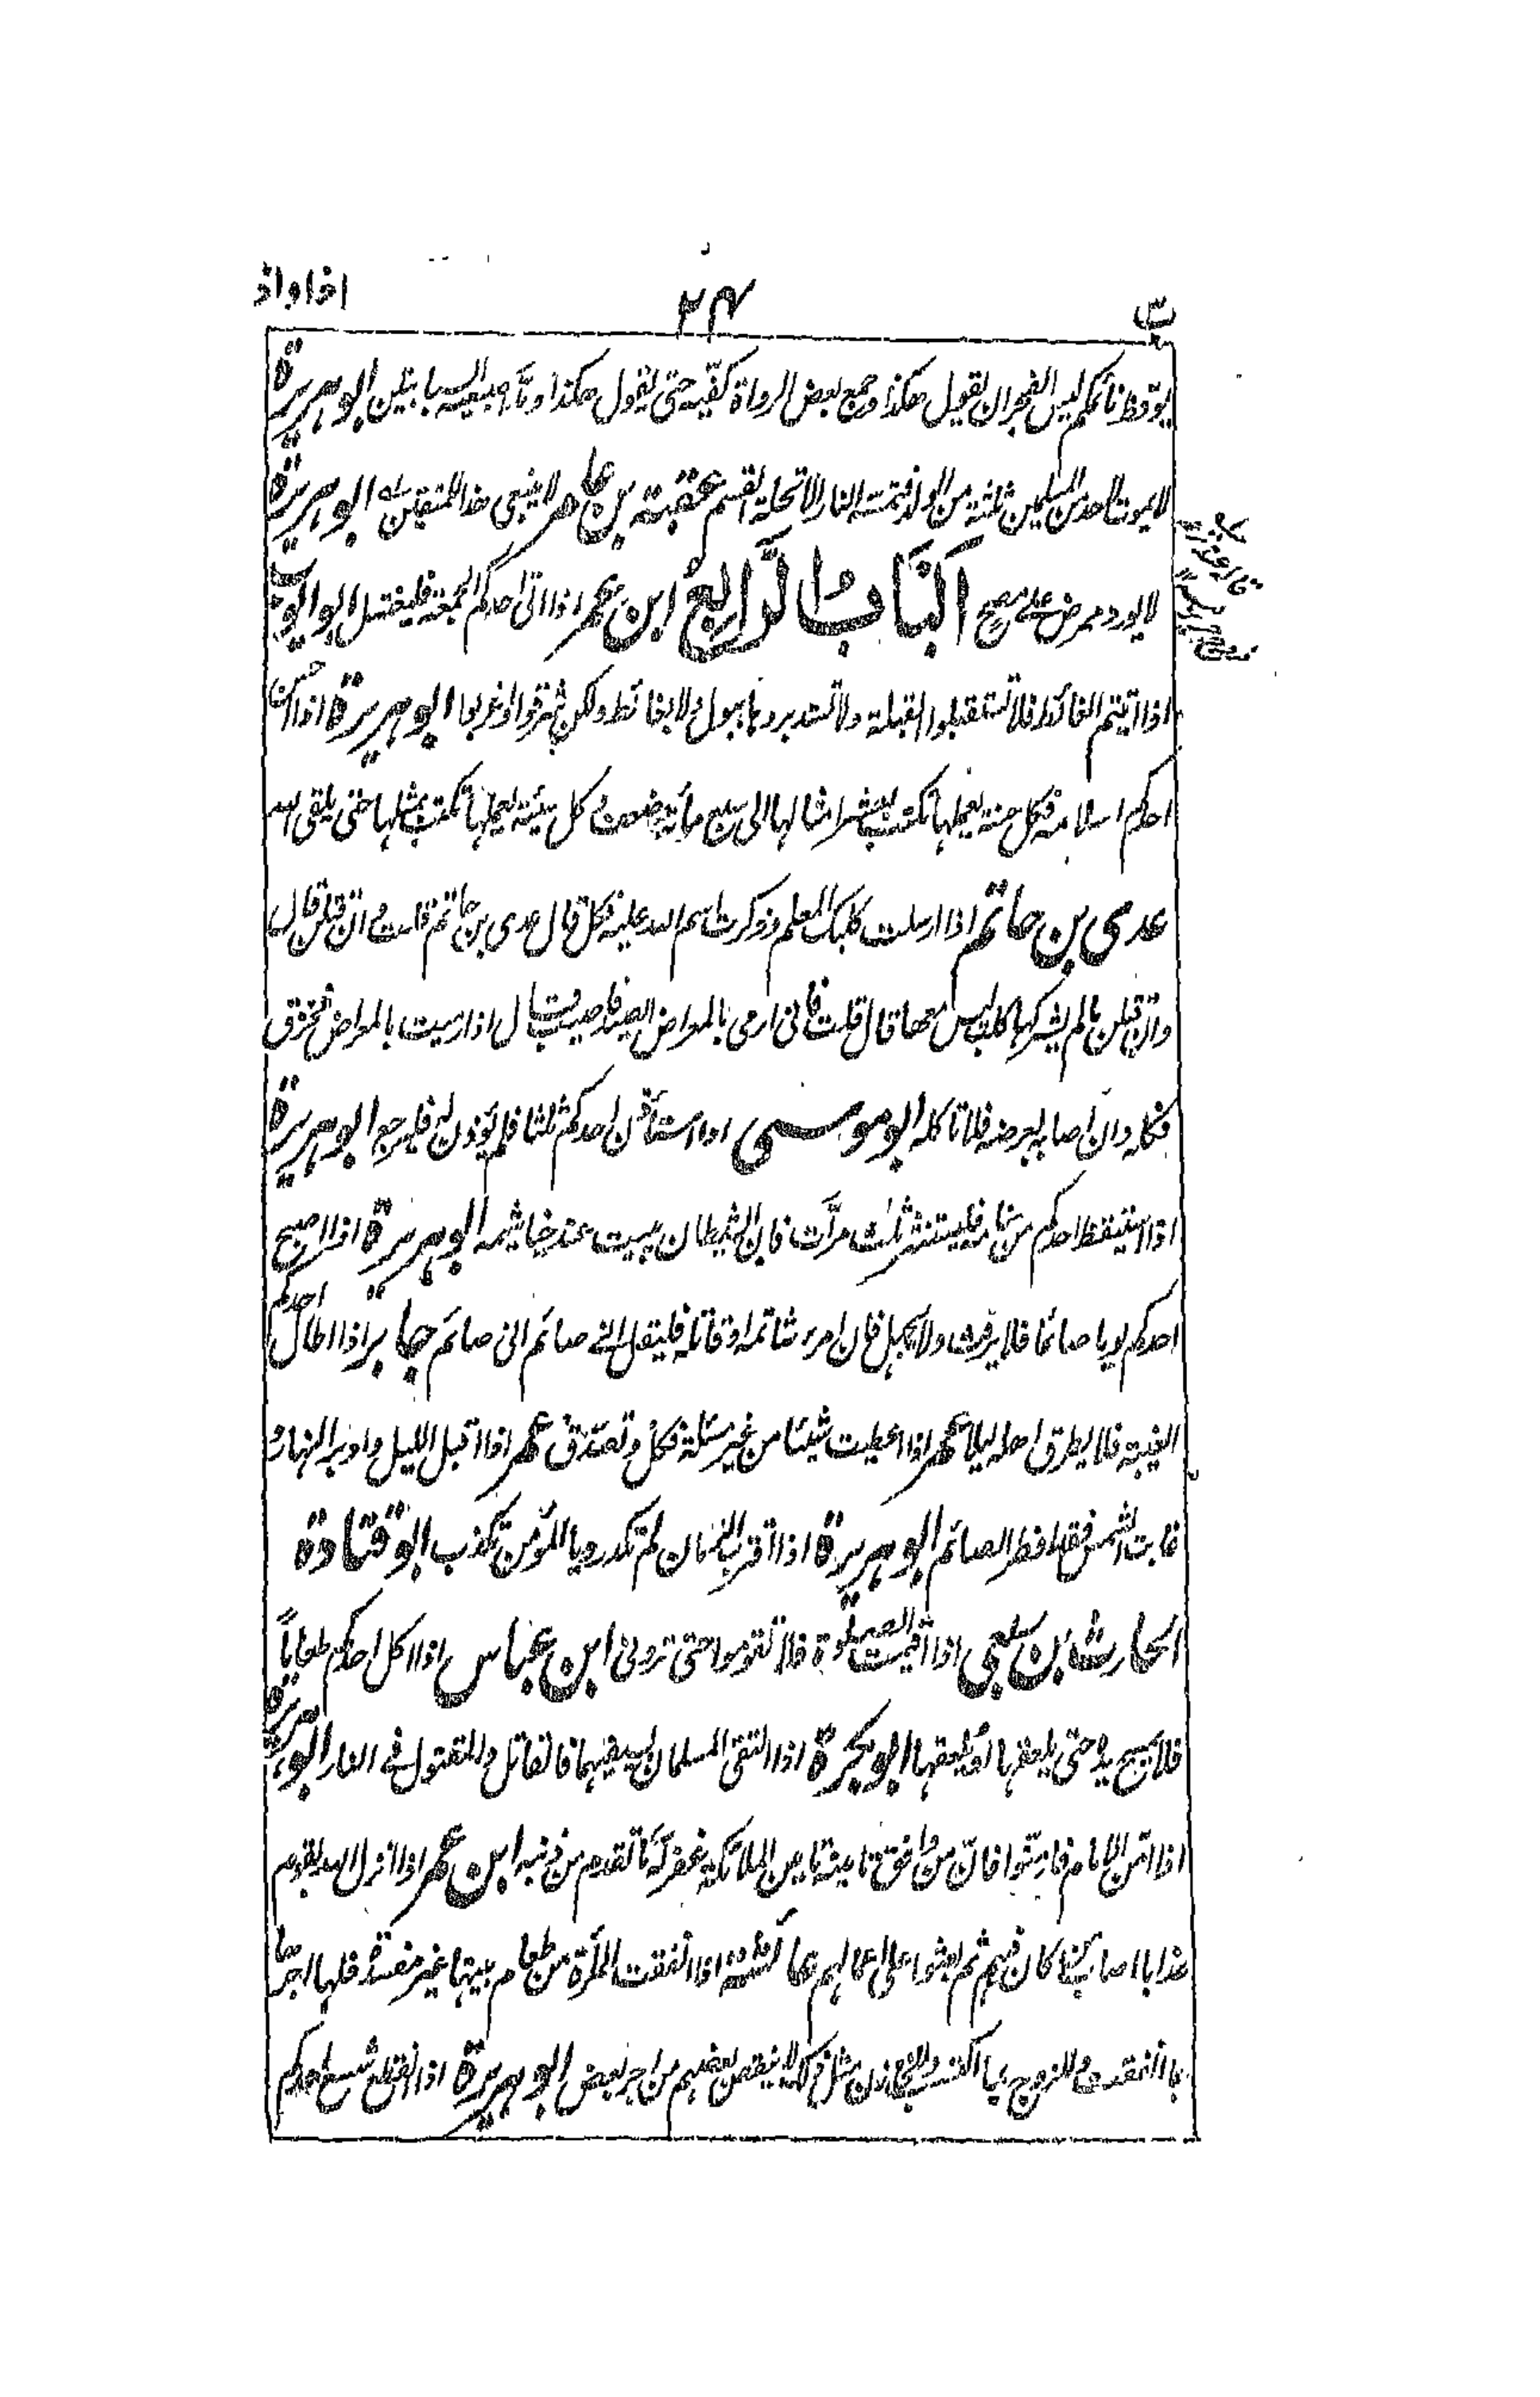 اذا واذ
۲۴
يوقظ نائمكم ليس الفجر ان يقول هكذا وجمع بعض الرواة كفيه حتى يقول هكذا ومد اصبعيه السبابتين ابو هريرة
لا يموت لاحد من المسلمين ثلثة من الولد فتمسه النار الا تحلة القسم عقبة بن عامر لا ينبغي هذا للمتقين ابو هريرة
لا يورد ممرض على مصح اَلبَابُ الرَّابِعُ ابن عمر اذا اتى احدكم الجمعة فليغتسل ابو ايوب
اذا اتيتم الغائط فلا تستقبلوا القبلة ولا تستدبروها ببول ولا بغائط ولكن شرقوا او غربوا ابو هريرة اذا احسن
احدكم اسلامه فكل حسنة يعملها تكتب بعشر امثالها الى سبع مائة ضعف و كل سيئة يعملها تكتب بمثلها حتى يلقى الله
عدى بن حاتم اذا ارسلت كلبك المعلم وذكرت اسم الله عليه فكل قال عدى بن حاتم قلت و ان قتلن قال
وان قتلن ما لم يشركها كلب ليس معها قال قلت فانى ارمى بالمعراض الصيد فاصيب قال اذا رميت بالمعراض فخزق
فكله وان اصابه بعرضه فلا تاكله ابو موسى اذا استأذن احدكم ثلثا فلم يؤذن له فليرجع ابو هريرة
اذا استيقظ احدكم من منامه فليستنثر ثلث مرات فان الشيطان يبيت عند خياشيمه ابو هريرة اذا اصبح
احدكم يوما صائما فلا يرفث ولا يجهل فان امرء شاتمه او قاتله فليقل انى صائم انى صائم جابر اذا اطال احدكم
الغيبة فلا يطرق اهله ليلا عمر اذا اعطيت شيئا من غير مسئلة فكل وتصدق عمر اذا اقبل الليل وادبر النهار و
غابت الشمس فقد افطر الصائم ابو هريرة اذا اقترب الزمان لم تكد رويا المؤمن تكذب ابو قتادة
الحارث بن ربعى اذا اقيمت الصلوة فلا تقوموا حتى ترونى ابن عباس اذا اكل احدكم طعاماً
فلا يمسح يده حتى يلعقها او يلعقها ابو بكرة اذا التقى المسلمان بسيفيهما فالقاتل والمقتول في النار ابو هريرة
اذا امن الامام فامنوا فان من وافق تامينه تامين الملائكة غفر له ما تقدم من ذنبه ابن عمر اذا انزل الله بقوم
عذابا اصاب من كان فيهم ثم بعثوا على اعمالهم عائشة اذا انفقت المرأة من طعام بيتها غير مفسدة فلها اجرها
بما انفقت وللزوج بما اكتسب وللخازن مثل ذلك لا ينقص بعضهم من اجر بعض ابو هريرة اذا انقطع شسع احدكم